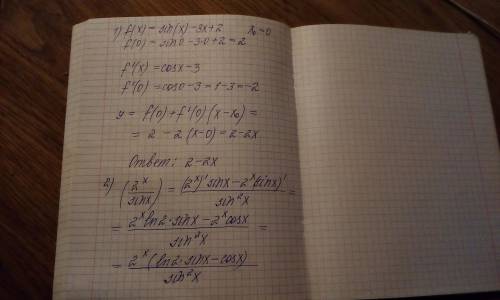 1) f(x) = sin(x) - 3x + 2      x₀ = 0
f(0) = sin0 - 3·0 + 2 = 2
f'(x) = cosx - 3
f'(0) = cos0 - 3 = 1 - 3 = -2
y = f(0) + f'(0)·(x - x₀) =
= 2 - 2(x - 0) = 2 - 2x
Ответ: 2 - 2x
2) (2ˣ/sinx)' = ((2ˣ)' sinx - 2ˣ(sinx)')/sin²x =
= (2ˣ ln2·sinx - 2ˣ cosx)/sin²x =
= 2ˣ(ln2·sinx - cosx)/sin²x